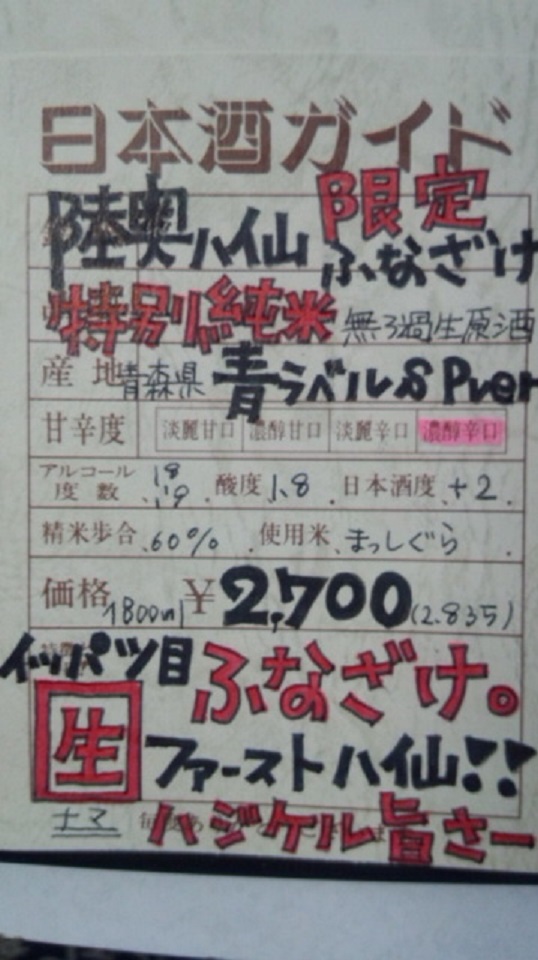 日本酒ガイド
陸奥ハ仙 限定 ふなざけ
特別純米 無ろ過生原酒
産地 青森県 青ラベル
甘辛度 淡麗甘口 濃醇甘口 淡麗辛口 濃醇辛口
アルコール度数 18 19 酸度 1.8 日本酒度 +2
精米歩合 60% 使用米 まっしぐら
価格 1800ml ¥2,700 (2.835)
イッパツ目 ふなざけ。
生 ファーストハ仙!!
ハジケル旨さー